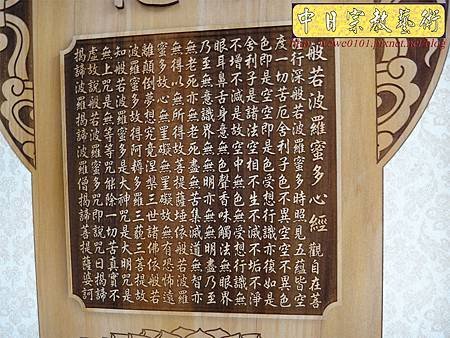 中日宗教藝術
http://wewe0101.pixnet.net/blog
般若波羅蜜多心經 觀自在菩
薩行深般若波羅蜜多時照見五蘊皆空
度一切苦厄舍利子色不異空空不異色
色即是空空即是色受想行識亦復如是
舍利子是諸法空相不生不滅不垢不淨
不增不減是故空中無色無受想行識無
眼耳鼻舌身意無色聲香味觸法無眼界
乃至無意識界無無明亦無無明盡乃至
無老死亦無老死盡無苦集滅道無智亦
無得以無所得故菩提薩埵依般若波羅
蜜多故心無罣礙無罣礙故無有恐怖遠
離顛倒夢想究竟涅槃三世諸佛依般若
波羅蜜多故得阿耨多羅三藐三菩提故
知般若波羅蜜多是大神咒是大明咒是
無上咒是無等等咒能除一切苦真實不
虛故說般若波羅蜜多咒即說咒曰揭諦
揭諦波羅揭諦波羅僧揭諦菩提薩婆訶